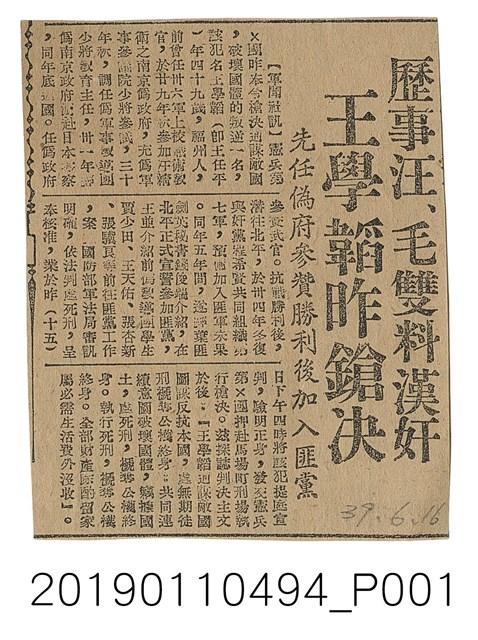 歷事汪、毛雙料漢奸
王學韜昨鎗決
先任偽府參贊勝利後加入匪黨
【軍聞社訊】憲兵第
×團昨奉令槍決通謀敵國
，破壞國體的叛逆一名，
該犯名王學韜（即王任平
）年四十九歲，福州人，
前曾任卅六軍上校戰術教
官，於廿九年秋參加汪精
衛之南京偽政府，充偽軍
事參議院少將參議，三十
年秋，調任偽軍事教導團
少將教育主任，卅一年
偽南京政府派赴日本考察
，同年底返國。任偽政府
參贊武官。抗戰勝利後，
潛往北平，於卅四年冬復
與奸黨程希賢共同組織第
七軍，預備加入匪軍未果
。同年五年間，遂
劍英秘書錢俊瑞介紹，在
北平正式宣誓參加匪黨，
王並介紹前偽教導團學生
賈少田、王天佑、張杏新
、張驥良等前往匪黨工作
，案經國防部軍法局審訊
明確，依法判處死刑，呈
奉核准，業於昨（十五）
日下午四時將該犯提庭宣
判，驗明正身，發交憲兵
第×團押赴馬場町刑場執
行槍決。茲探誌判決主文
於後：「王學韜通謀敵國
圖謀反抗本國，處無期徒
刑褫奪公權終身。共同連
續意圖破壞國體，竊據國
土，處死刑，褫奪公權終
身。執行死刑，褫奪公權
終身。全部財產除酌留家
屬必需生活費外沒收」。
39.6.16
20190110494_P001